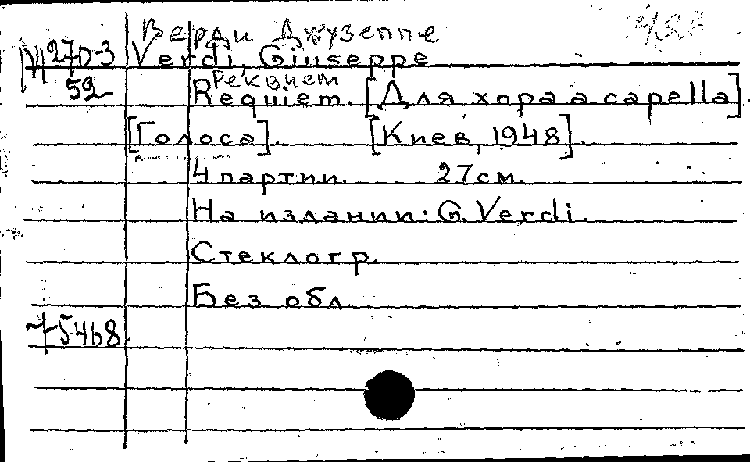 Верди Джузеппе
М 27D-3 Verdi, Giuseppe
Реквием
52 Requiem. [Для хора a capella].
[Голоса]. [Киев, 1948].
4 партии. 27 см.
На издании: G. Verdi.
Стеклогр.
Без обл
5468